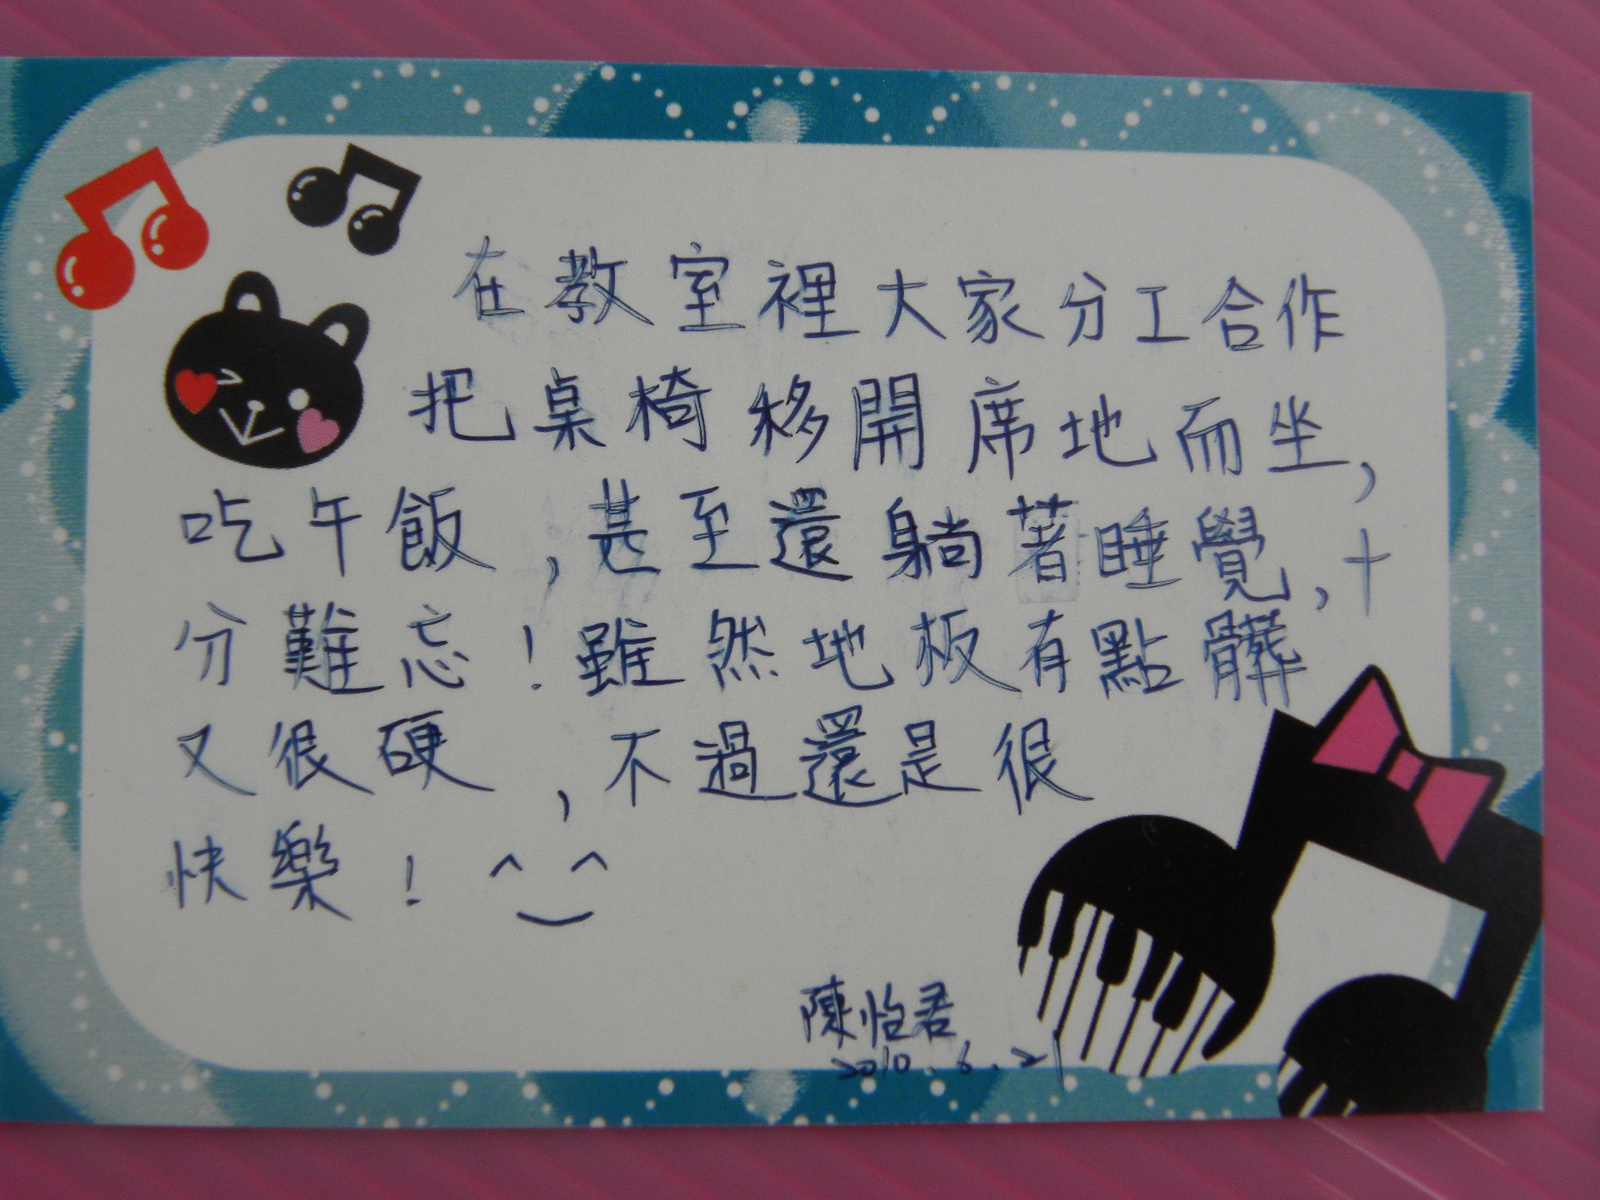 在教室裡大家分工合作
把桌椅移開席地而坐,
吃午飯,甚至還躺著睡覺,十
分難忘!雖然地板有點髒
又很硬,不過還是很
快樂! ^_^
陳怡君
2010.6.21